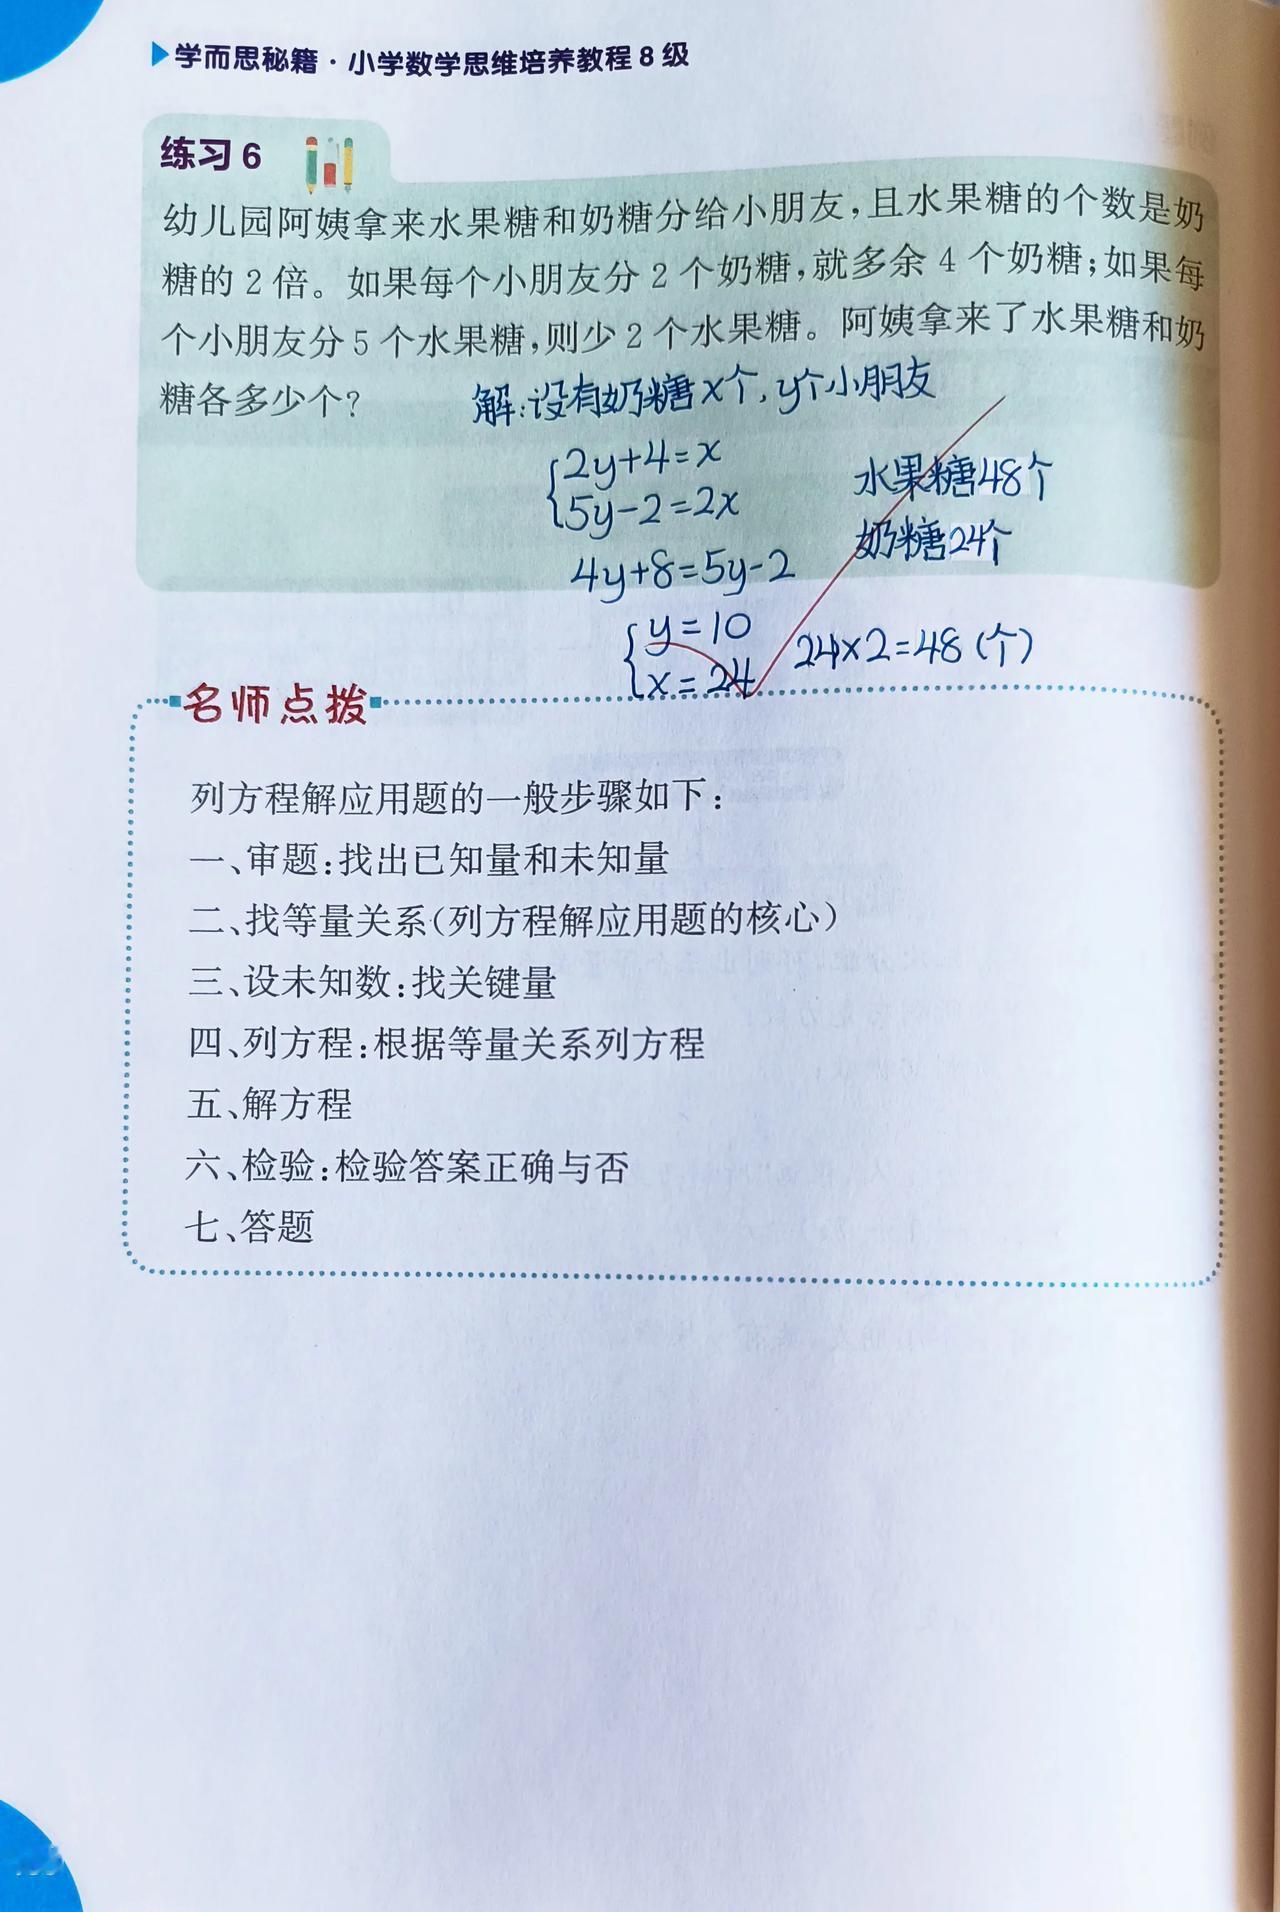 学而思秘籍·小学数学思维培养教程8级
练习6
幼儿园阿姨拿来水果糖和奶糖分给小朋友,且水果糖的个数是奶
糖的2倍。如果每个小朋友分2个奶糖,就多余4个奶糖;如果每
个小朋友分5个水果糖,则少2个水果糖。阿姨拿来了水果糖和奶
糖各多少个?
解:设有奶糖x个,y个小朋友
2y+4=x
5y-2=2x
4y+8=5y-2
y=10
x=24
水果糖48个
奶糖24个
24×2=48(个)
名师点拨
列方程解应用题的一般步骤如下:
一、审题:找出已知量和未知量
二、找等量关系(列方程解应用题的核心)
三、设未知数:找关键量
四、列方程:根据等量关系列方程
五、解方程
六、检验:检验答案正确与否
七、答题